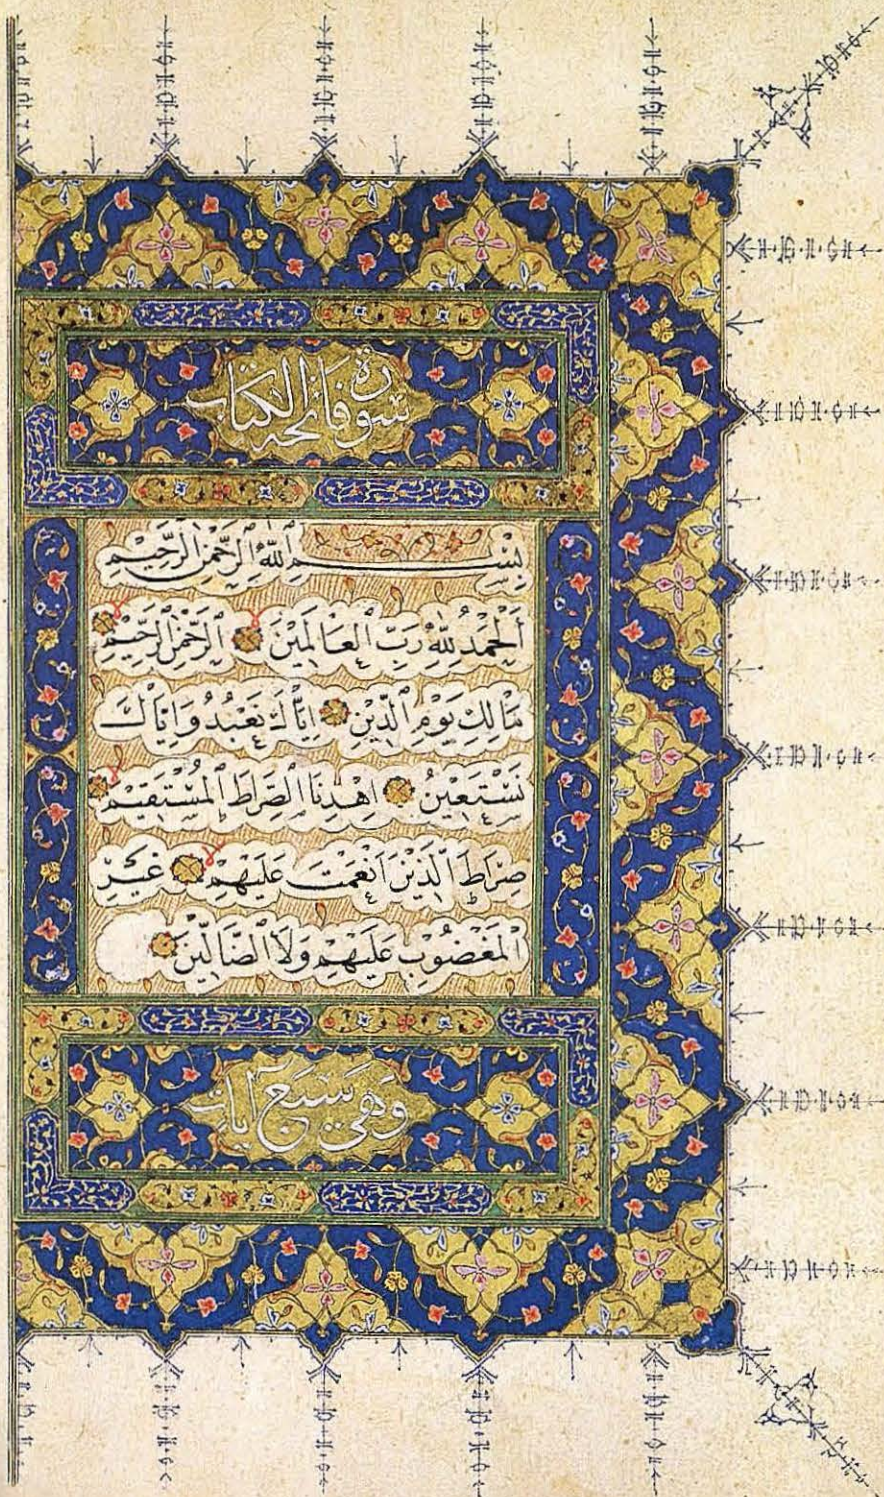 سورة فاتحة الكتاب
بِسْمِ ٱللَّهِ ٱلرَّحْمٰنِ ٱلرَّحِيمِ
أَلْحَمْدُ لِلّٰهِ رَبِّ ٱلْعَالَمِيْنَ ۝ ٱلرَّحْمٰنِ ٱلرَّحِيْمِ ۝
مَالِكِ يَوْمِ ٱلدِّيْنِ ۝ اِيَّاكَ نَعْبُدُ وَاِيَّاكَ
نَسْتَعِيْنُ ۝ اِهْدِنَا ٱلصِّرَاطَ ٱلْمُسْتَقِيْمَ ۝
صِرَاطَ ٱلَّذِيْنَ اَنْعَمْتَ عَلَيْهِمْ ۝ غَيْرِ
ٱلْمَغْضُوْبِ عَلَيْهِمْ وَلَا ٱلضَّالِّيْنَ ۝
وَهِيَ سَبْعُ آيَاتٍ